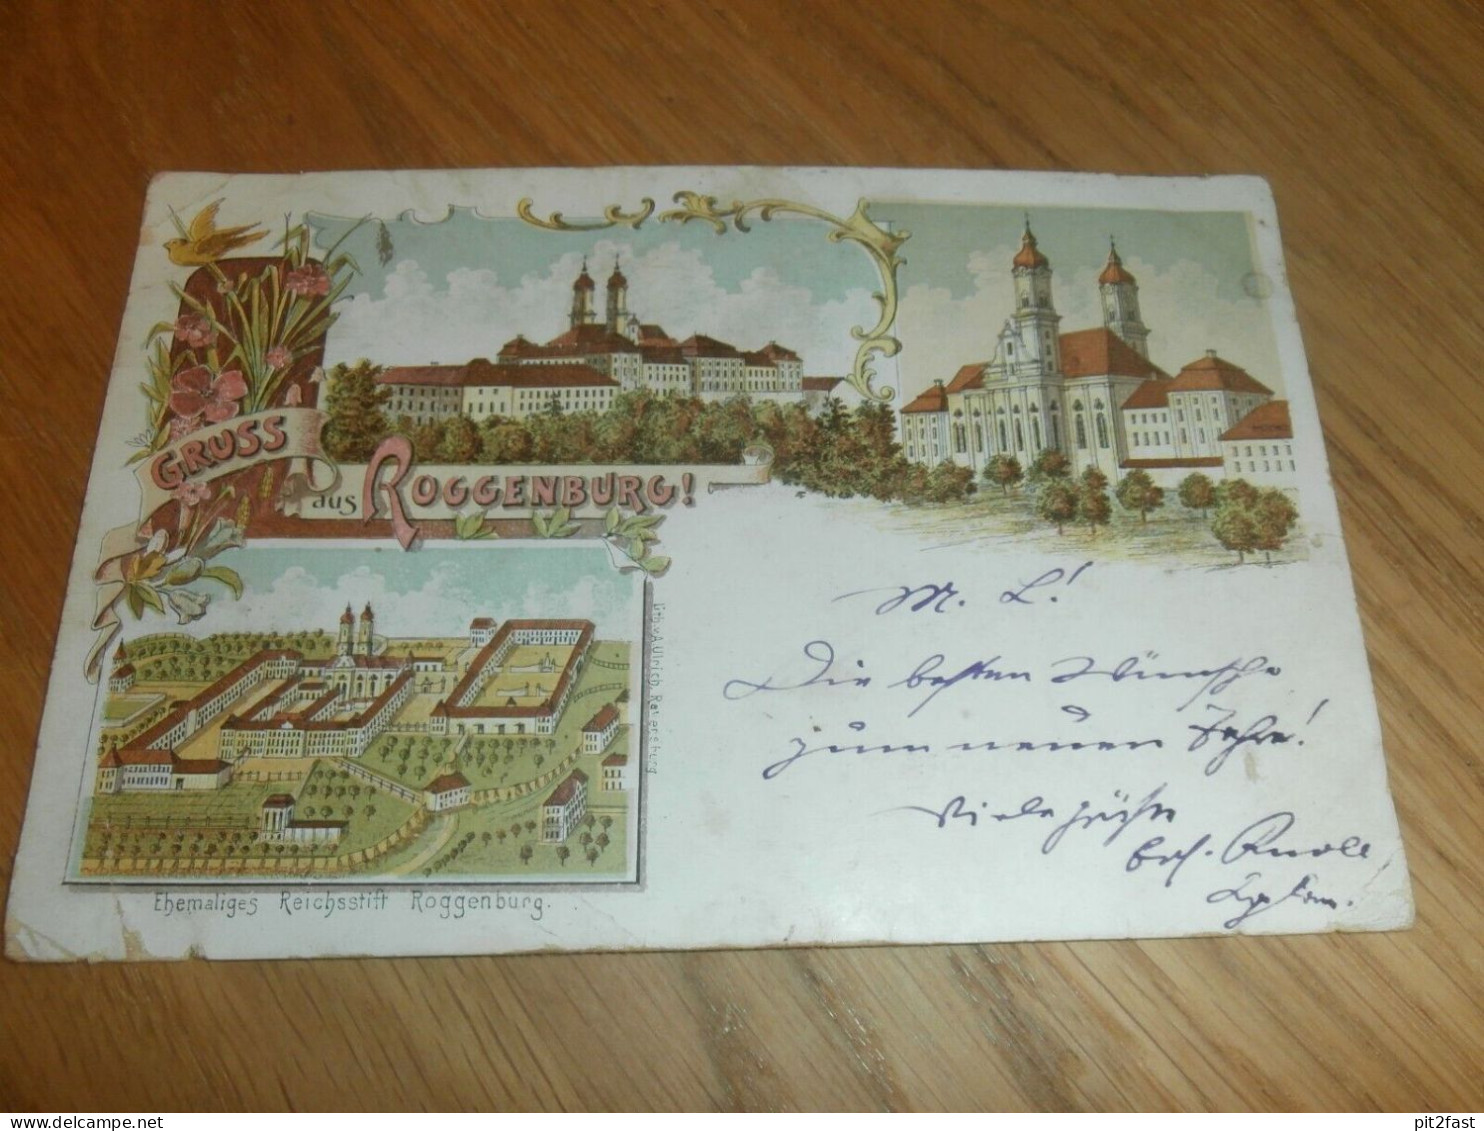 GRUSS
aus ROGGENBURG!
Lith. v. A. Ulrich, Ravensburg
Ehemaliges Reichsstift Roggenburg.
M. L!
Die besten Wünsche
zum neuen Jahre!
Viele Grüße
Knoll
Kaplan.
© delcampe.net
pit2fast